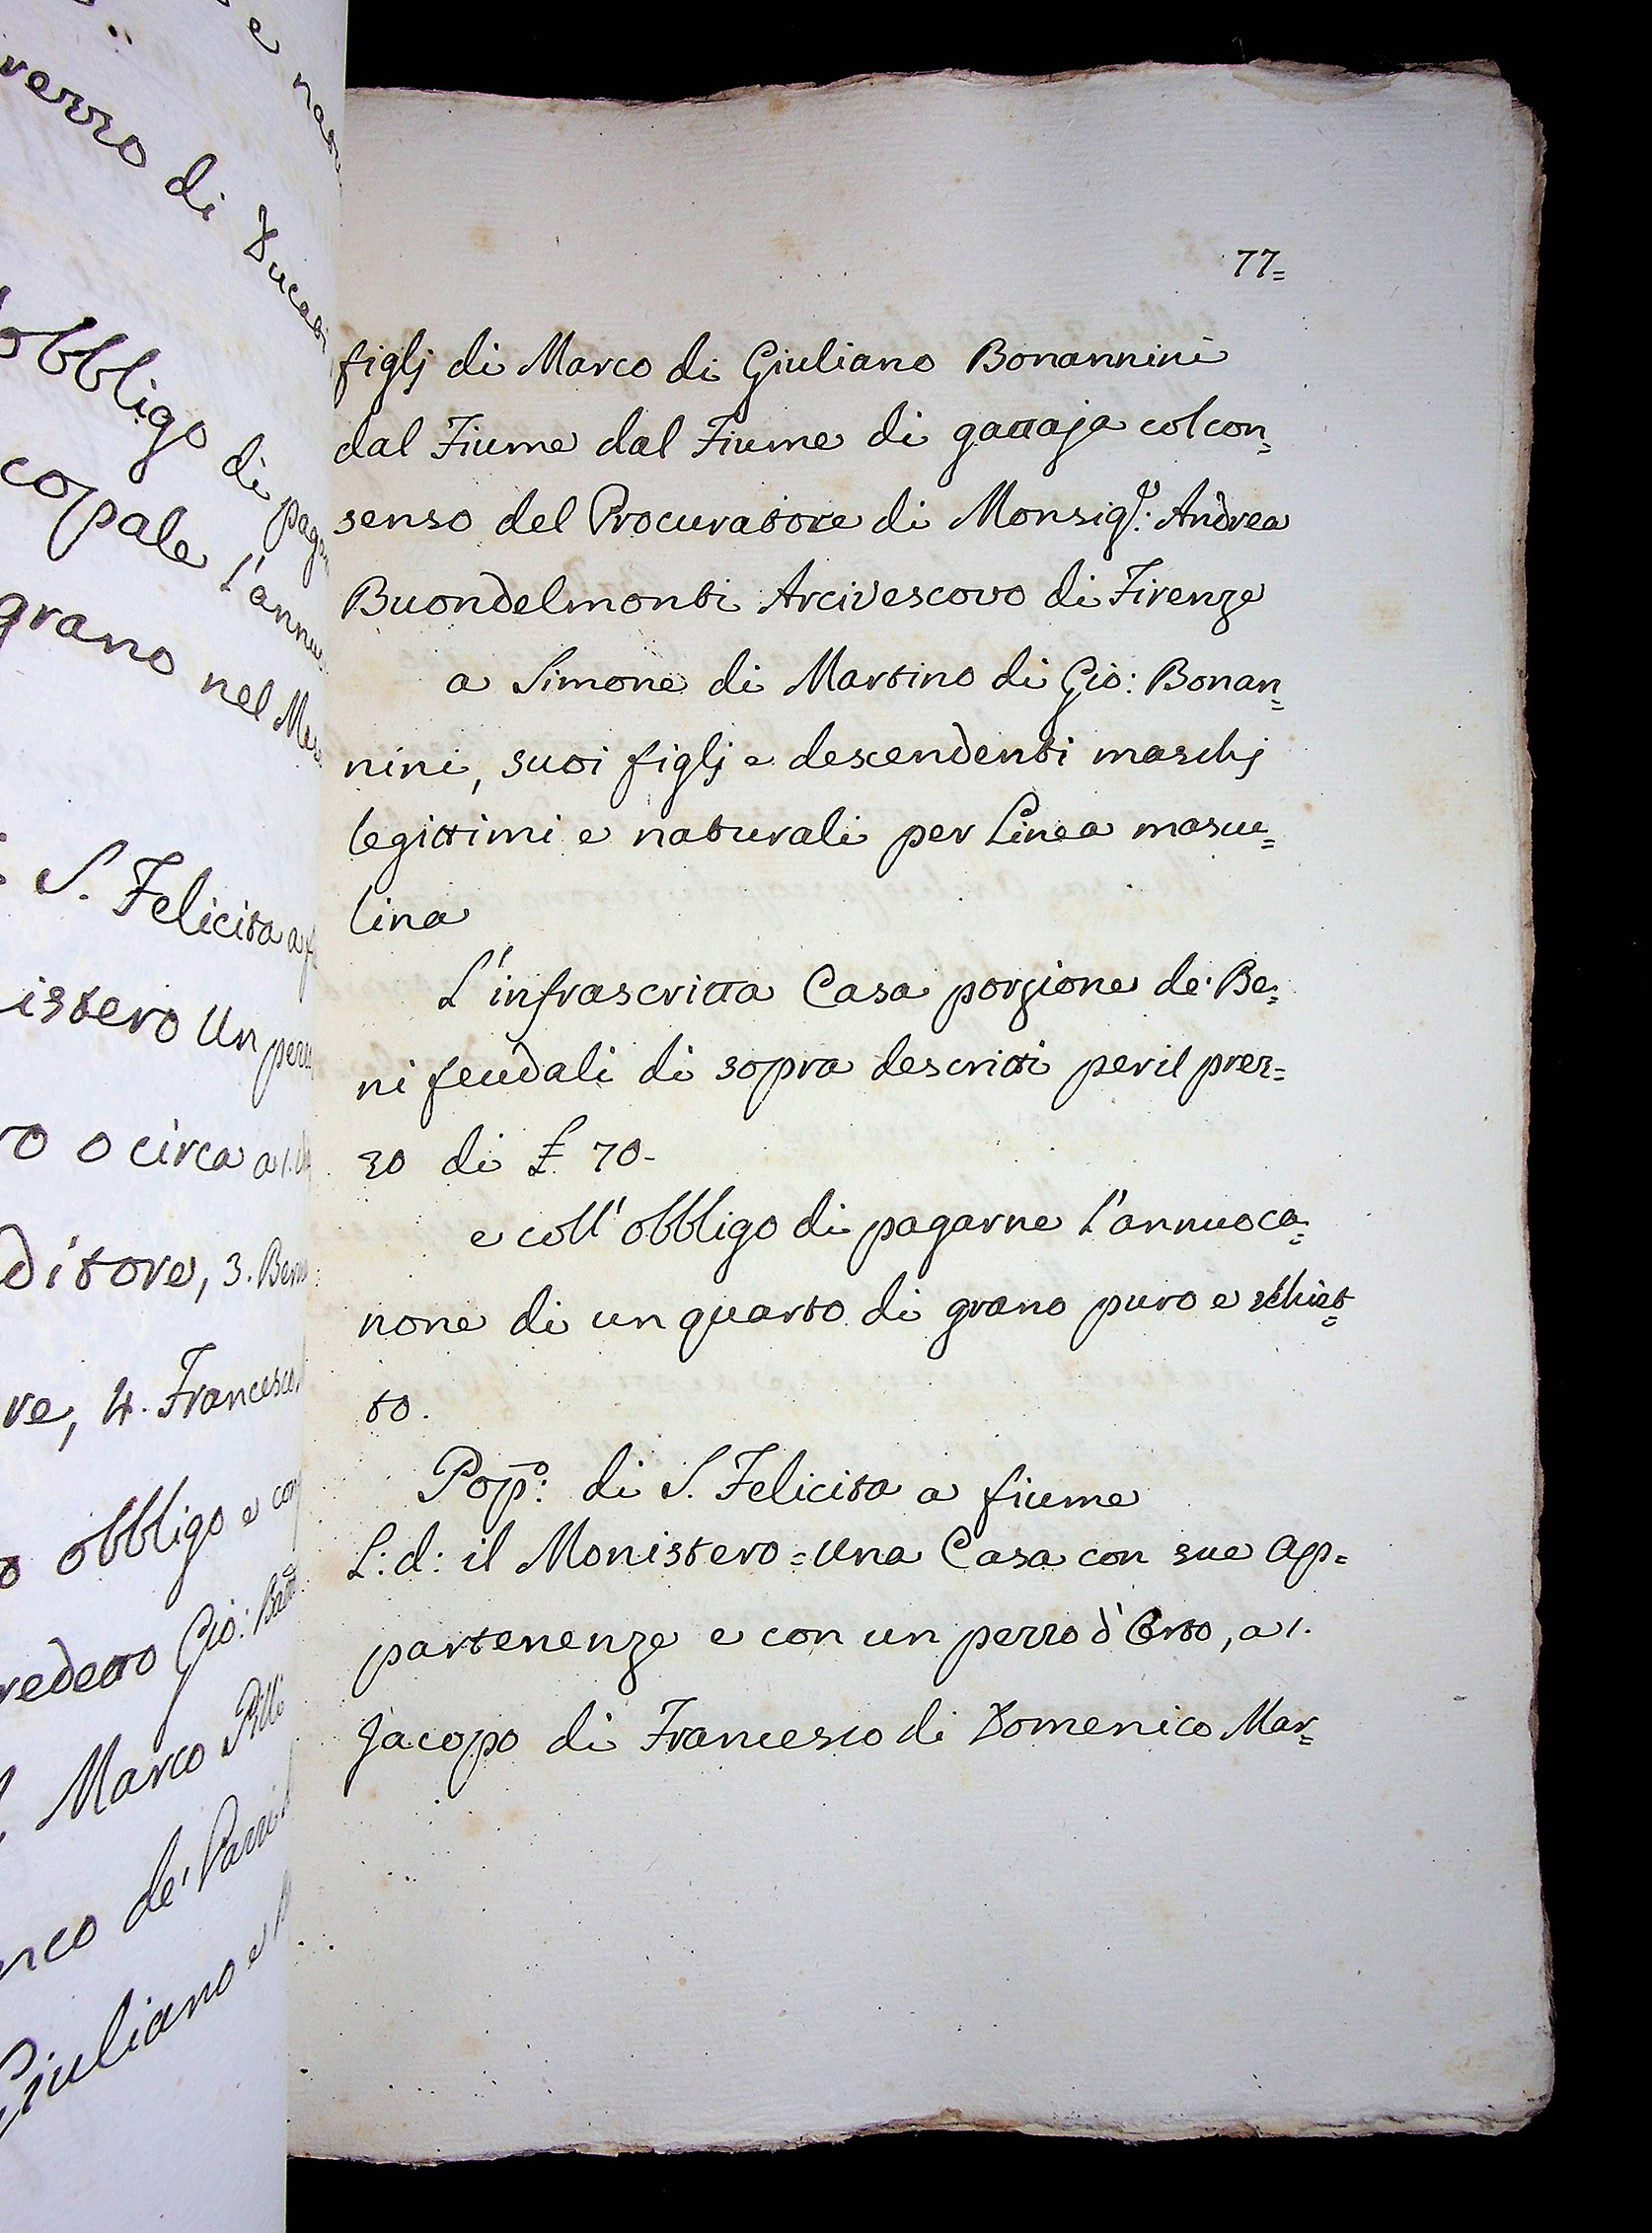 verro di Ducati
obbligo di pagar
copale l'annuo
grano nel
S. Felicita a
istero Un
ro o circa a 1.
ditore, 3.
re, 4. Francesco
o obbligo e con
redetto Gio:
Marco
nco de'
Giuliano e
77=
figlj di Marco di Giuliano Bonannini
dal Fiume dal Fiume di gattaja col con=
senso del Procuratore di Monsig.r: Andrea
Buondelmonti Arcivescovo di Firenze
a Simone di Martino di Gio: Bonan=
nini, suoi figlj e descendenti maschj
legittimi e naturali per Linea mascu=
lina
L'infrascritta Casa porzione de' Be=
ni feudali di sopra descritti per il prez=
zo di £ 70-
e coll' obbligo di pagarne l'annuo ca=
none di un quarto di grano puro e schiet=
to.
Pop.o: di S. Felicita a fiume
L: d: il Monistero = Una Casa con sue ap=
partenenze e con un pezzo d'Orto, a 1.
Jacopo di Francesco di Domenico Mar=